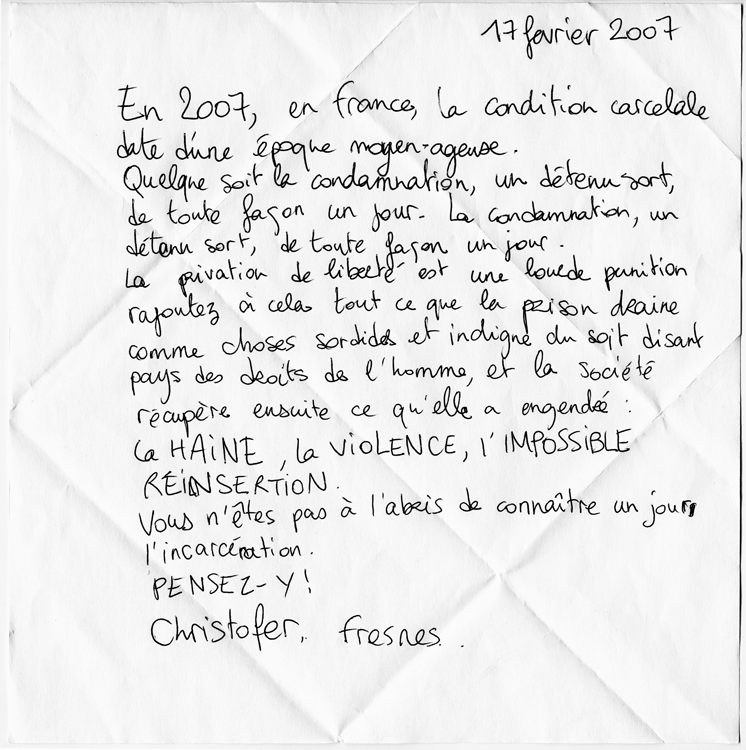 17 fevrier 2007
En 2007, en france, la condition carcelale
date d'une époque moyen-ageuse.
Quelque soit la condamnation, un détenu sort,
de toute façon un jour. La condamnation, un
détenu sort, de toute façon un jour.
La privation de liberté est une lourde punition
rajoutez à cela tout ce que la prison draine
comme choses sordides et indigne du soit disant
pays des droits de l'homme, et la société
récupère ensuite ce qu'elle a engendré :
la HAINE, la VIOLENCE, l'IMPOSSIBLE
RÉINSERTION.
Vous n'êtes pas à l'abris de connaître un jour
l'incarcération.
PENSEZ-Y !
Christofer, fresnes.